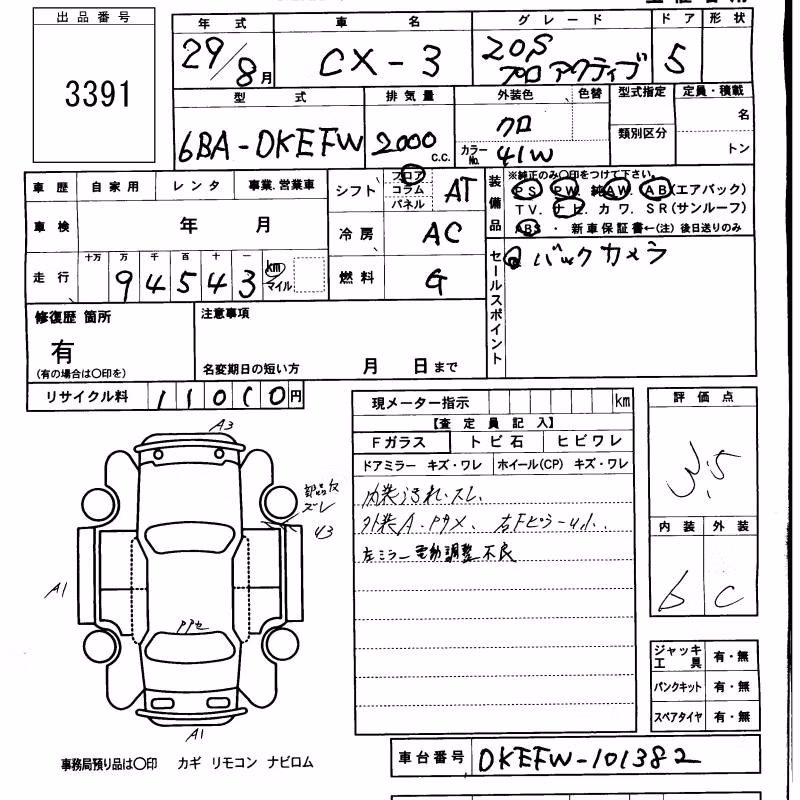 出品番号
3391
年式 車名 グレード ドア 形状
29/8月 CX-3 20S プロアクティブ 5
型式 排気量 外装色 色替 型式指定 定員・積載
6BA-DKEFW 2000c.c. クロ カラーNo. 41W 類別区分 名
トン
車歴 自家用 レンタ 事業.営業車
シフト フロア コラム パネル AT
装備品 ※純正のみ〇印をつけて下さい。
PS. PW. 純AW. AB(エアバック)
TV. ナビ. カワ. SR(サンルーフ)
ABS ・ 新車保証書←(注)後日送りのみ
車検 年 月
冷房 AC
走行 十万 万 千 百 十 一
94543 km マイル
燃料 G
セールスポイント バックカメラ
修復歴 箇所
有
(有の場合は〇印を)
注意事項
名変期日の短い方 月 日まで
リサイクル料 11010円
現メーター指示 km
【査定員記入】
Fガラス トビ石 ヒビワレ
ドアミラー キズ・ワレ ホイール(CP) キズ・ワレ
内装よごれ.スレ.
外装A.ドカメ. 右Fピラーu小.
左ミラー電動調整不良
評価点
3.5
内装 外装
b C
ジャッキ 工具 有・無
パンクキット 有・無
スペアタイヤ 有・無
A3
ズレ
A1
A1
事務局預り品は〇印 カギ リモコン ナビロム
車台番号 DKEFW-101382